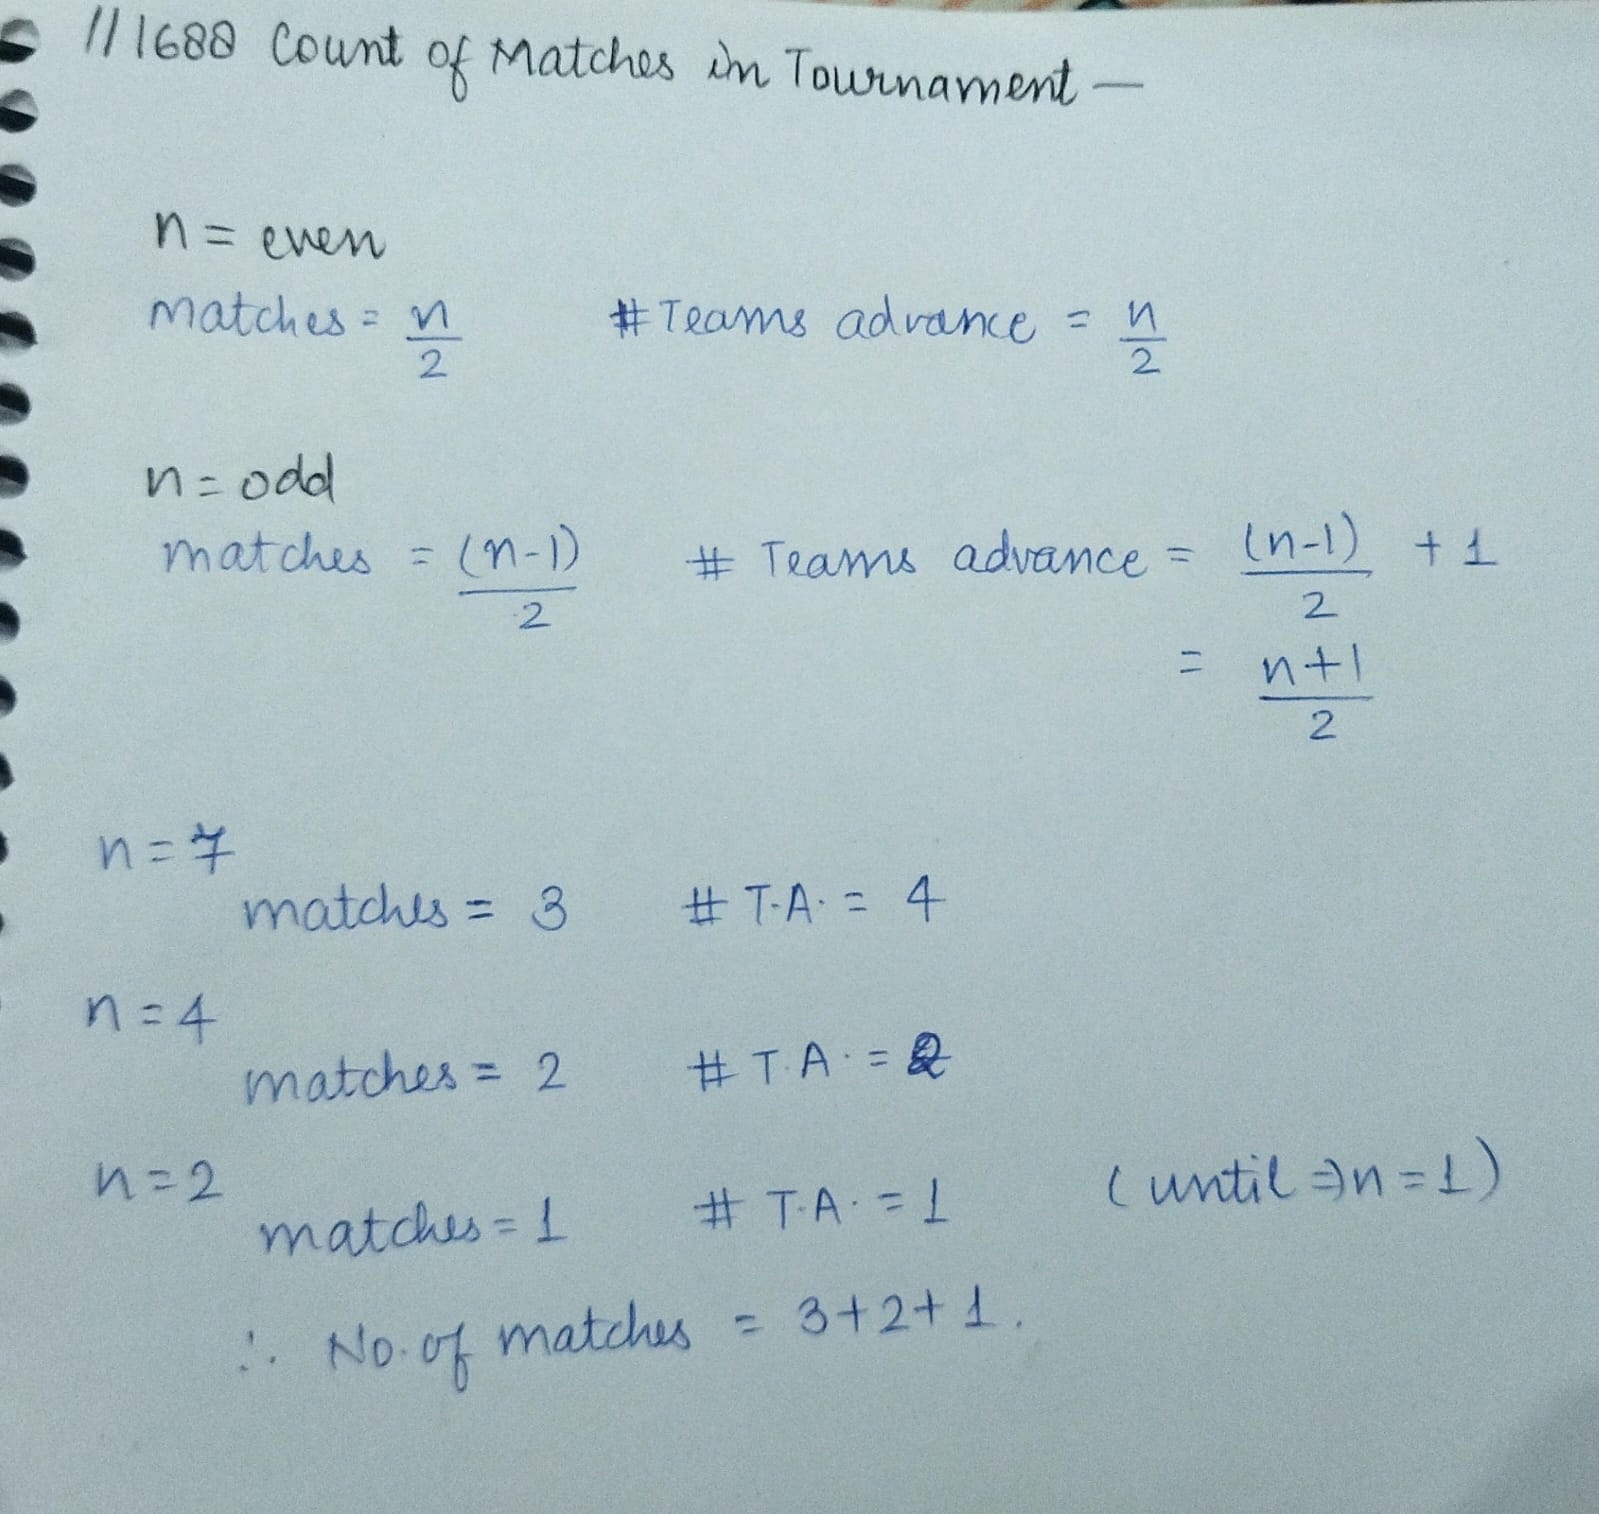 // 1688 Count of Matches in Tournament —
n = even
matches = n/2 # Teams advance = n/2
n = odd
matches = (n-1)/2 # Teams advance = (n-1)/2 + 1
= n+1/2
n = 7
matches = 3 # T.A. = 4
n = 4
matches = 2 # T.A. = 2
n = 2
matches = 1 # T.A. = 1 (until ⇒ n = 1)
∴ No. of matches = 3+2+1.